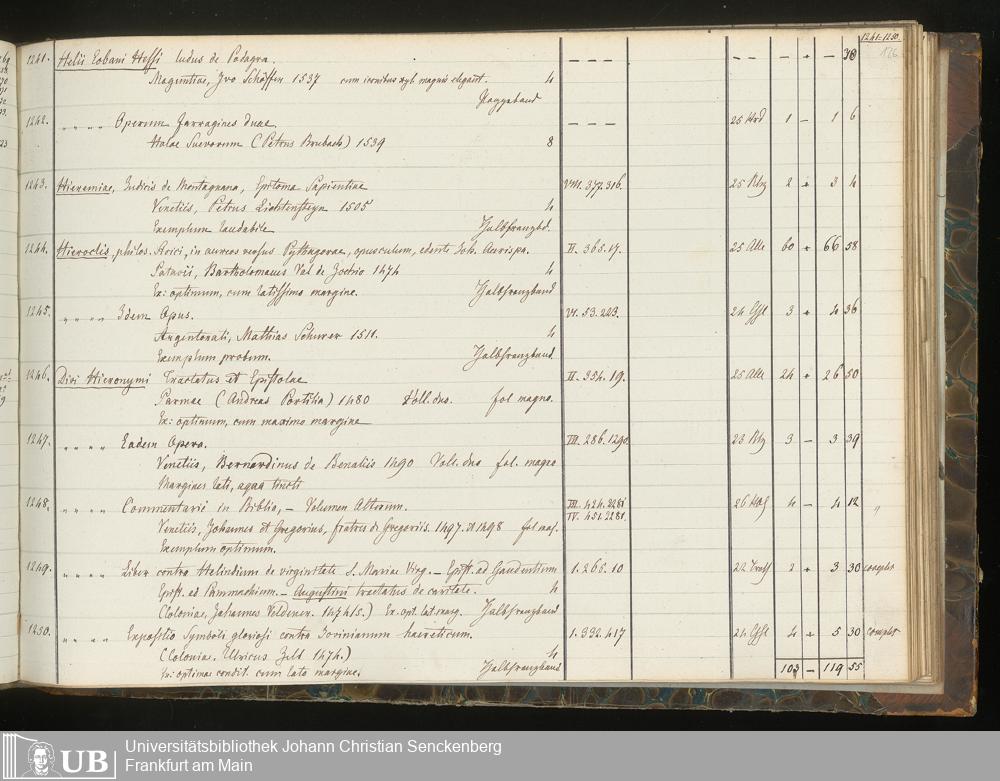 1241-1250.
126
1241. Helii Eobani Hessi ludus de Podagra. - - - - - - + - 78
Maguntiae, Jvo Schöffer 1537 cum iconibus xyl. magnis elegant. 4
Pappeband
1242. " " " " Operum farragines duae. - - - 25 Hrd 1 - 1 6
Halae Suevorum (Petrus Brubach) 1539 8
1243. Hieremiae, Iudicis de Montagnana, Epitoma Sapientiae 377. 316. 25 2 + 3 4
Venetiis, Petrus Lichtensteyn 1505 4
Exemplum laudabile Halbfranzbd.
1244. Hieroclis, philos. Stoici, in aureos versus Pythagorae, opusculum, edente Joh. Aurispa. II. 365. 17. 25 Alle 60 + 66 58
Patavii, Bartholomaeus Val de Zoctio 1474 4
Ex: optimum, cum latissimo margine. Halbfranzband
1245. " " " " Idem Opus. VI. 53. 223. 24 3 + 4 36
Argentorati, Mathias Schurer 1511. 4
Exemplum probum. Halbfranzband.
1246. Divi Hieronymi Tractatus et Epistolae II. 354. 19. 25 Alle 24 + 26 50
Parmae (Andreas Portilia) 1480 Voll. duo. fol magno.
Ex: optimum, cum maximo margine
1247. " " " " Eadem Opera. III. 286. 1290 23 3 - 3 39
Venetiis, Bernardinus de Benaliis 1490 Voll. duo fol. magno
Margines lati, aqua tincti
1248. " " " " Commentarii in Biblia, - Volumen Alterum. III. 424. 2281 26 4 - 4 12 "
IV. 451. 2281.
Venetiis, Johannes et Gregorius, fratres de Gregoriis. 1497. et 1498 fol maj.
Exemplum optimum.
1249. " " " " Liber contra Helvidium de virginitate S. Mariae Virg. - Epist. ad Gaudentium 1. 265. 10 22 2 + 3 30 complet
Epist. ad Pammachium. - Augustini tractatus de caritate. 4
(Coloniae, Johannes Veldener. 1474/5.) Ex. opt. lat. marg. Halbfranzband
1250. " " " " Expositio Symboli gloriosi contra Jovinianum haereticum. 1. 332. 417 24 4 + 5 30 complet
(Coloniae. Ulricus Zell 1474.) 4
Ex: optimae condit. cum lato margine. Halbfranzband
103 - 119 55
UB
Universitätsbibliothek Johann Christian Senckenberg
Frankfurt am Main